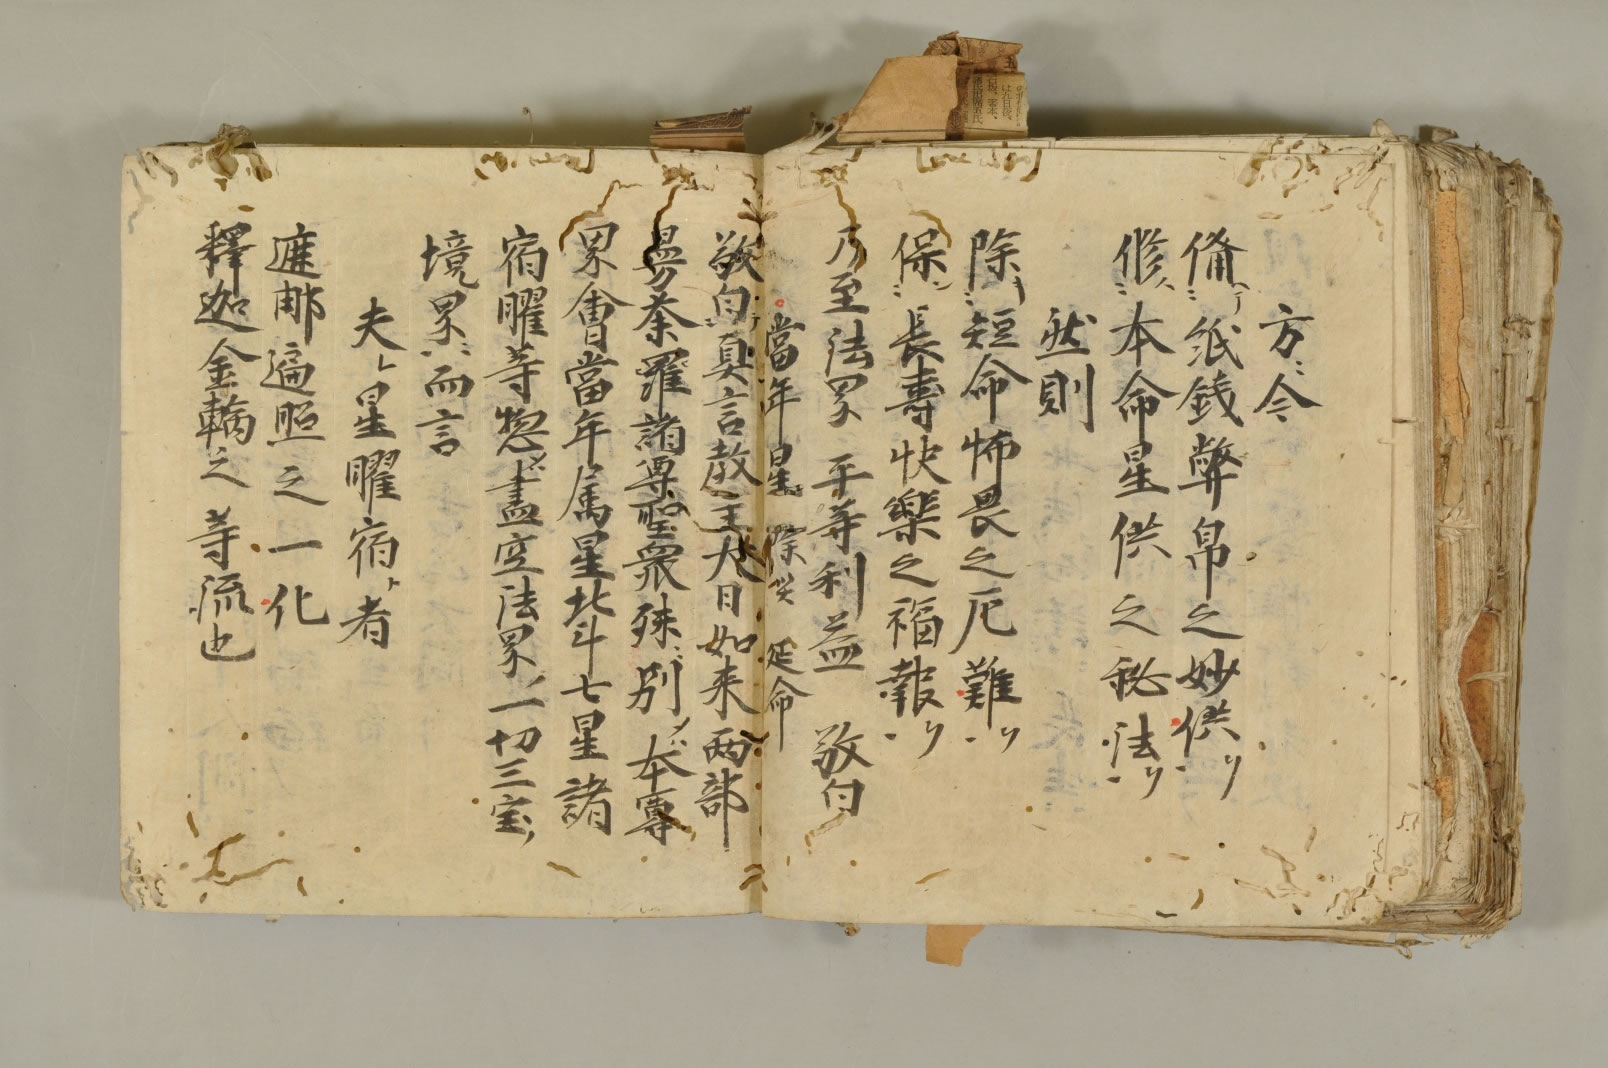 方今
備紙銭幣帛之妙供
修本命星供之秘法
然則
除短命怖畏之厄難
保長壽快樂之福報
乃至法界平等利益 敬白
當年星 除災 延命
敬白真言教主大日如来両部
曼荼羅諸尊聖衆殊別メハ本尊
界會當年属星北斗七星諸
宿曜等惣シテハ盡空法界ノ一切三宝ノ
境界ニ而言
夫レ星曜宿ト者
遮那遍照之一化
釋迦金輪之等流也